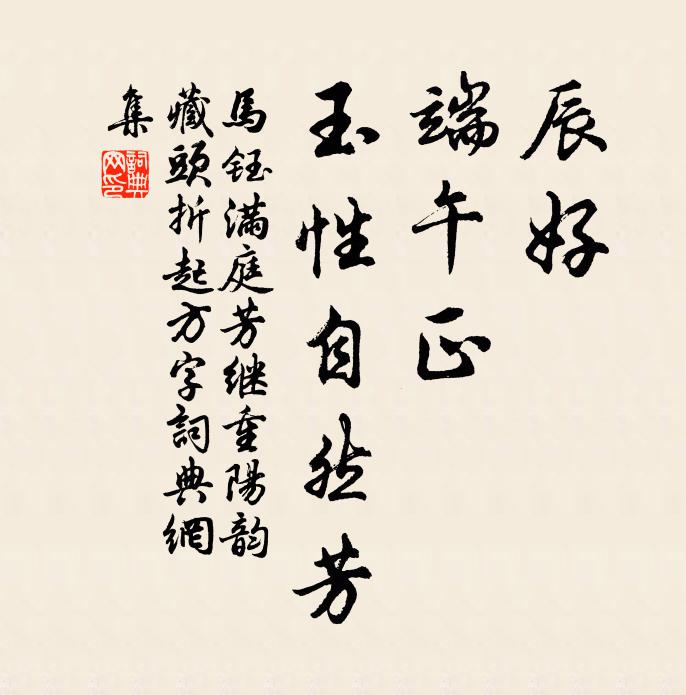 辰好
端午正
玉性自然芳
馬鈺滿庭芳继重陽韵
藏頭折起方字詞典網
集
詞典
网印